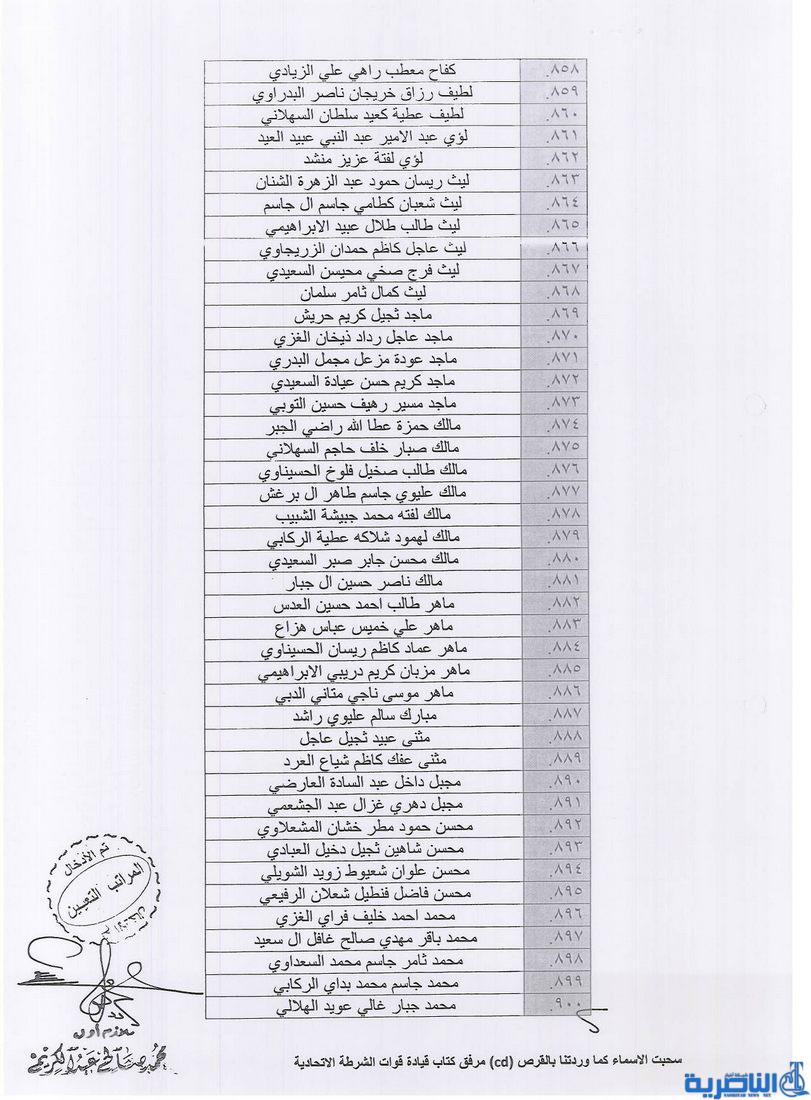 ٨٥٨. كفاح معطب راهي علي الزيادي
٨٥٩. لطيف رزاق خريجان ناصر البدراوي
٨٦٠. لطيف عطية كعيد سلطان السهلاني
٨٦١. لؤي عبد الامير عبد النبي عبيد العيد
٨٦٢. لؤي لفتة عزيز منشد
٨٦٣. ليث ريسان حمود عبد الزهرة الشنان
٨٦٤. ليث شعبان كطامي جاسم ال جاسم
٨٦٥. ليث طالب طلال عبيد الابراهيمي
٨٦٦. ليث عاجل كاظم حمدان الزريجاوي
٨٦٧. ليث فرج صخي محيسن السعيدي
٨٦٨. ليث كمال ثامر سلمان
٨٦٩. ماجد ثجيل كريم حريش
٨٧٠. ماجد عاجل رداد ذيخان الغزي
٨٧١. ماجد عودة مزعل مجمل البدري
٨٧٢. ماجد كريم حسن عيادة السعيدي
٨٧٣. ماجد مسير رهيف حسين التوبي
٨٧٤. مالك حمزة عطا الله راضي الجبر
٨٧٥. مالك صبار خلف حاجم السهلاني
٨٧٦. مالك طالب صخيل فلوخ الحسيناوي
٨٧٧. مالك عليوي جاسم طاهر ال برغش
٨٧٨. مالك لفته محمد جبيشة الشبيب
٨٧٩. مالك لهمود شلاكه عطية الركابي
٨٨٠. مالك محسن جابر صبر السعيدي
٨٨١. مالك ناصر حسين ال جبار
٨٨٢. ماهر طالب احمد حسين العدس
٨٨٣. ماهر علي خميس عباس هزاع
٨٨٤. ماهر عماد كاظم ريسان الحسيناوي
٨٨٥. ماهر مزبان كريم دريبي الابراهيمي
٨٨٦. ماهر موسى ناجي متاني الدبي
٨٨٧. مبارك سالم عليوي راشد
٨٨٨. مثنى عبيد ثجيل عاجل
٨٨٩. مثنى عفك كاظم شياع العرد
٨٩٠. مجبل داخل عبد السادة العارضي
٨٩١. مجبل دهري غزال عبد الجشعمي
٨٩٢. محسن حمود مطر خشان المشعلاوي
٨٩٣. محسن شاهين ثجيل دخيل العبادي
٨٩٤. محسن علوان شعيوط زويد الشويلي
٨٩٥. محسن فاضل فنطيل شعلان الرفيعي
٨٩٦. محمد احمد خليف فراي الغزي
٨٩٧. محمد باقر مهدي صالح غافل ال سعيد
٨٩٨. محمد ثامر جاسم محمد السعداوي
٨٩٩. محمد جاسم محمد بداي الركابي
٩٠٠. محمد جبار غالي عويد الهلالي
تم الأدخال
المراتب التعيين
ملازم أول
محمد صالح عبد الكريم
سحبت الاسماء كما وردتنا بالقرص (cd) مرفق كتاب قيادة قوات الشرطة الاتحادية
شبكة أخبار
الناصرية
NASIRIYAH NEWS NET